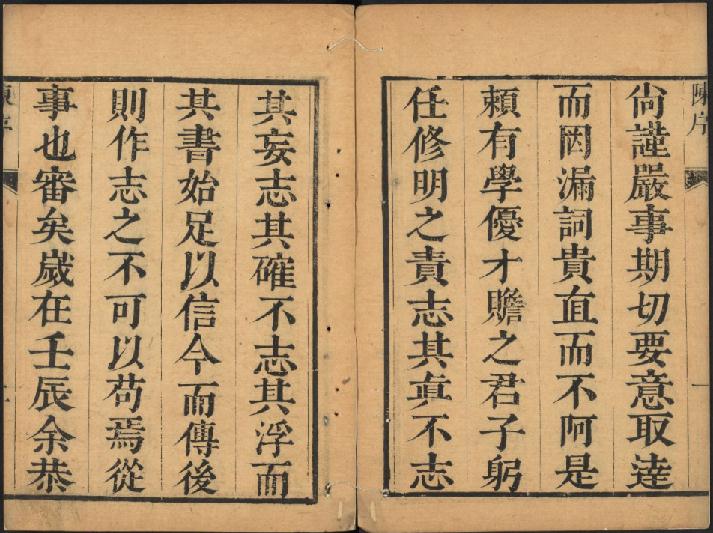 陳序
尙謹嚴事期切要意取達
而罔漏詞貴直而不阿是
頼有學優才贍之君子躬
任修明之責志其眞不志
其妄志其確不志其浮而
其書始足以信今而傳後
則作志之不可以苟焉從
事也審矣歲在壬辰余恭
陳序